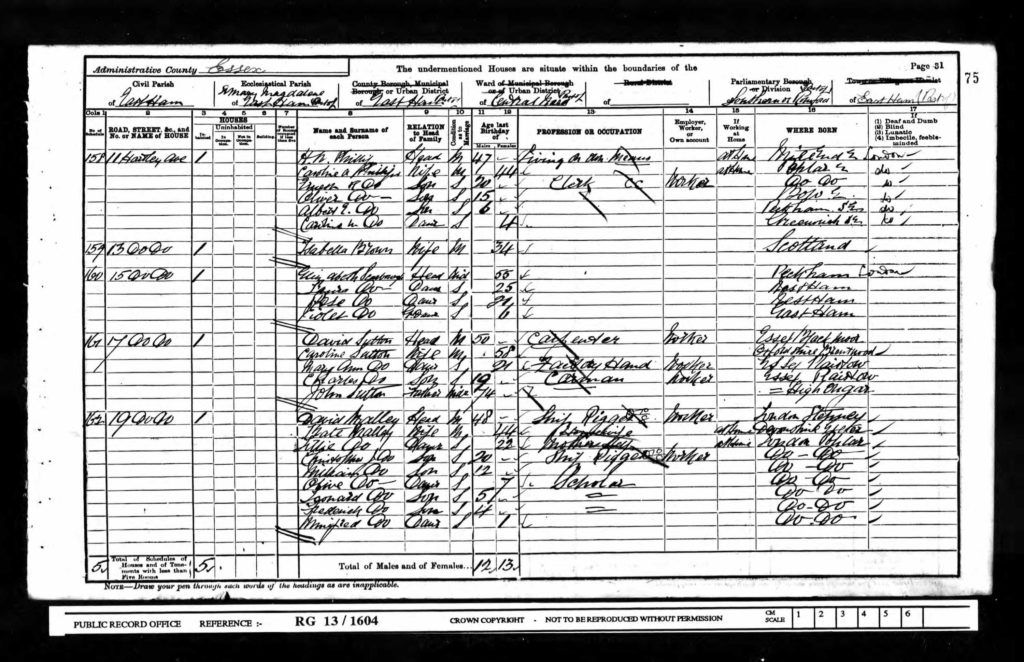 Administrative County Essex
The undermentioned Houses are situate within the boundaries of the
Page 31
75
Civil Parish
of East Ham
Ecclesiastical Parish
of
County Borough, Municipal Borough or Urban District
of East Ham
Ward of Municipal Borough or of Urban District
of Central Ward
Rural District
Parliamentary Borough or Division
of Southern
of East Ham
Cols 1 2 3 4 5 6 7 8 9 10 11 12 13 14 15 16 17
No. of Schedule
ROAD, STREET, &c., and No. or NAME of HOUSE
HOUSES
Inhabited
Uninhabited
Building
Name and Surname of each Person
RELATION to Head of Family
Condition as to Marriage
Age last Birthday of
Males Females
PROFESSION OR OCCUPATION
Employer, Worker, or Own account
If Working at Home
WHERE BORN
(1) Deaf and Dumb
(2) Blind
(3) Lunatic
(4) Imbecile, feeble-minded
158 11 Hartley Ave 1 Head M 47 Living on own Means Mile End London
Caroline A Wife M 44 Poplar do
Do Son S 20 Clerk Worker Do Do do
Oliver Do Son S 15 Bow do
Albert E. Do Son 6 Peckham S.E. do
Caroline Do Daur S 4 Greenwich do
159 13 Do Do 1 Isabella Brown Wife M 34 Scotland
160 15 Do Do 1 Head Wid 55 Peckham London
Do Daur S 25 West Ham
Rose Do Daur S 21 West Ham
Violet Do 6 East Ham
161 17 Do Do 1 David Sutton Head M 50 Carpenter Worker Essex
Caroline Sutton Wife M 58
Mary Ann Do Daur S 21 Factory Hand Worker Essex Plaistow
Charles Do Son S 19 Carman Worker Essex Plaistow
John Sutton Father 74 High Ongar
162 19 Do Do 1 David Malley Head M 48 Ship Rigger Worker London Stepney
Malley Wife M 44 at home Devonshire Exeter
Do Daur S 22 at home London Poplar
Christopher Do Son S 20 Ship Rigger Worker Do - Do
William Do Son S 12 Do - Do
Olive Do Daur S 7 Scholar Do - Do
Leonard Do Son S 5 Do - Do
Frederick Do Son S 4 Do - Do
Winifred Do Daur S 1 Do - Do
5 Total of Schedules of Houses and of Tenements with less than Five Rooms 5 Total of Males and of Females... 12 13
NOTE—Draw your pen through such words of the headings as are inapplicable.
PUBLIC RECORD OFFICE REFERENCE :- RG 13 / 1604 CROWN COPYRIGHT - NOT TO BE REPRODUCED WITHOUT PERMISSION CM SCALE 1 2 3 4 5 6